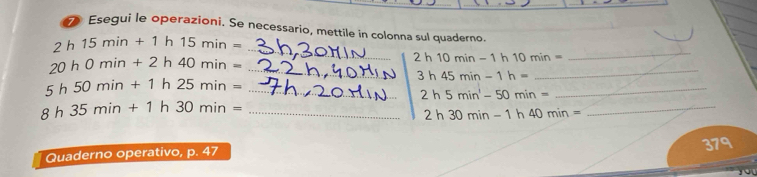 7 Esegui le operazioni. Se necessario, mettile in colonna sul quaderno.
2 h 15 min + 1 h 15 min = 3h,30MIN
20 h 0 min + 2 h 40 min = 22h,40MIN
5 h 50 min + 1 h 25 min = 7h,20MIN
8 h 35 min + 1 h 30 min =
2 h 10 min – 1 h 10 min =
3 h 45 min – 1 h =
2 h 5 min – 50 min =
2 h 30 min – 1 h 40 min =
Quaderno operativo, p. 47
379